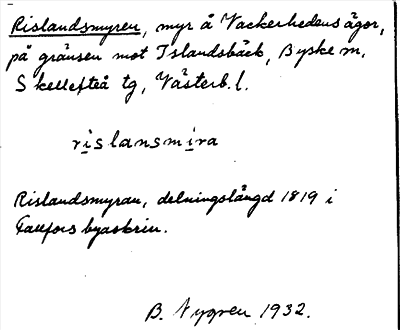 Rislandsmyren, myr å Vackerhedens ägor,
på gränsen mot Islandsbäck, Byske sn,
Skellefteå tg, Västerb. l.
rislansmira
Rislandsmyran, delningslängd 1819 i
Fallfors byaskrin.
B. Nygren 1932.